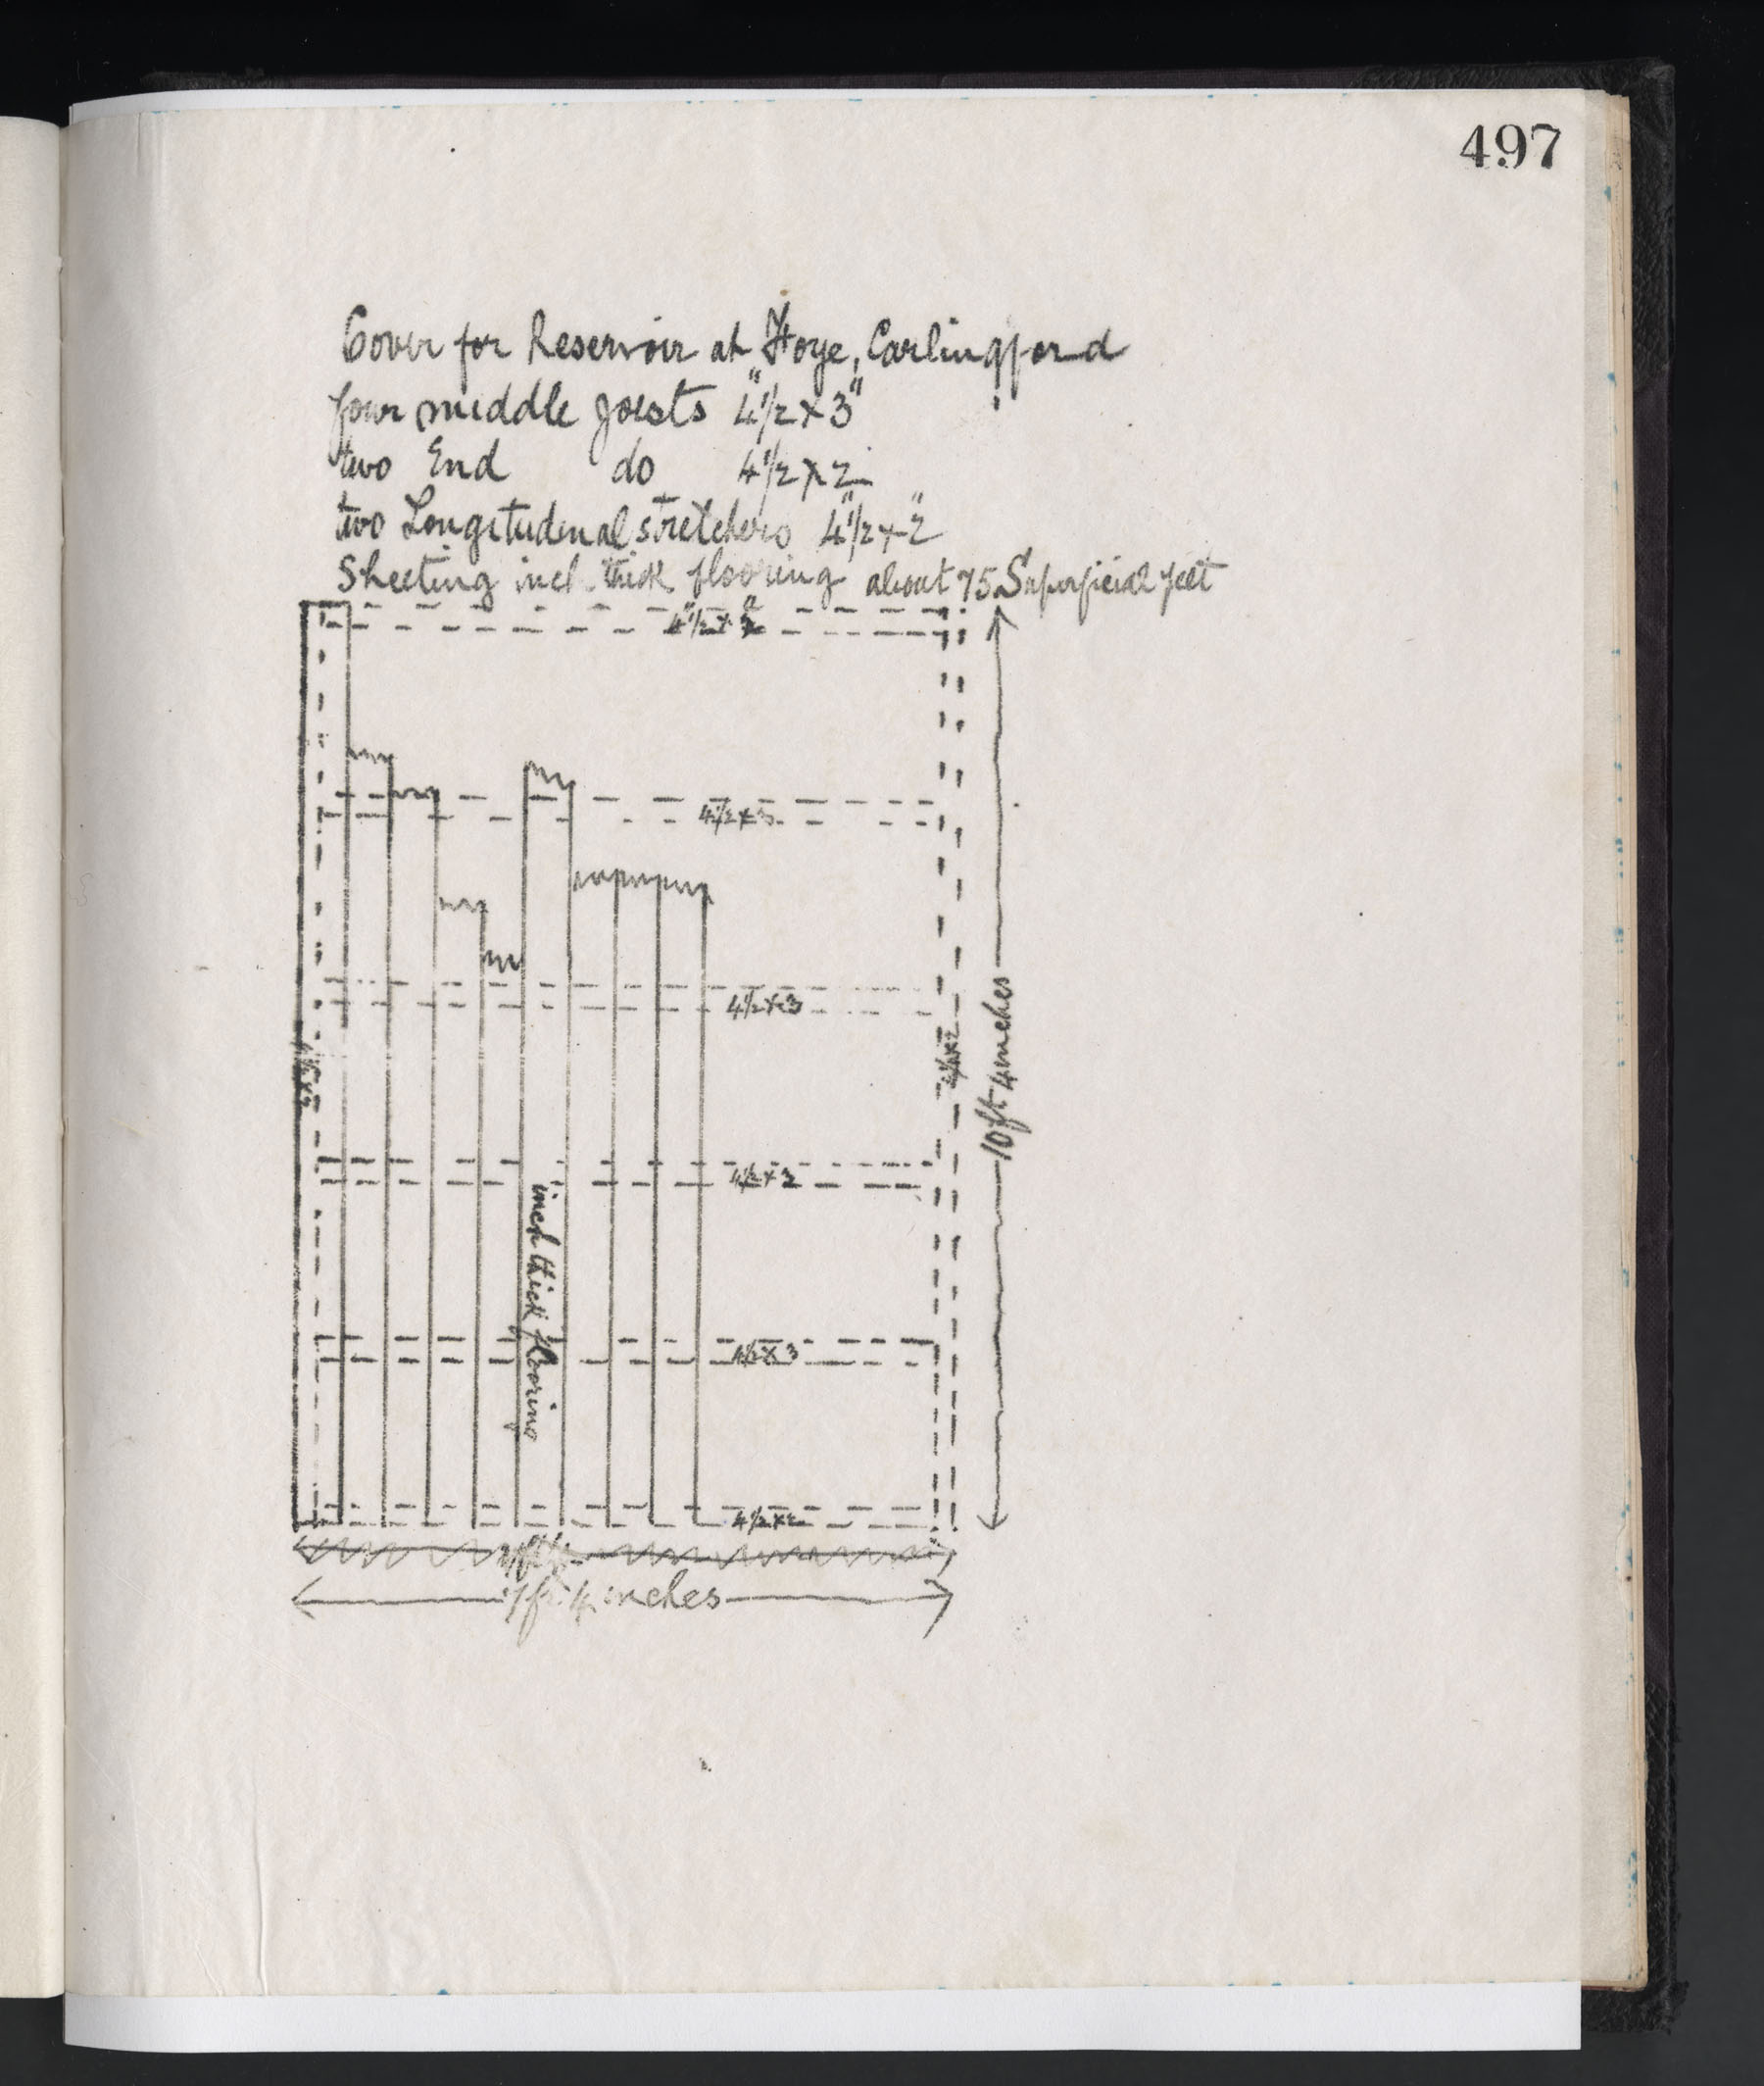 497
Cover for Reservoir at Foye, Carlingford
four middle joists 4½" x 3"
two End do 4½ x 2
two Longitudinal stretchers 4½" x 2"
Sheeting inch thick flooring about 75 Superficial feet
4½" x 2"
4½ x 3
4½ x 3
4½ x 2
4½ x 2
10 ft 4 inches
4½ x 3
inch thick flooring
4½ x 3
4½ x 2
7 ft 4 inches